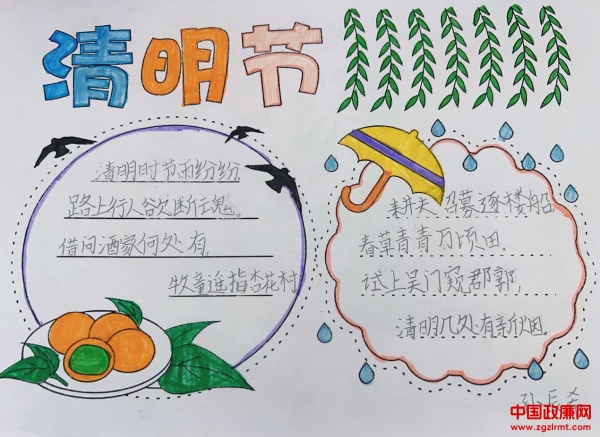 清明节
清明时节雨纷纷
路上行人欲断魂。
借问酒家何处有,
牧童遥指杏花村
耕夫召募逐楼船
春草青青万顷田
试上吴门窥郡郭,
清明几处有新烟.
中国政廉网
www.zgzlrmt.com